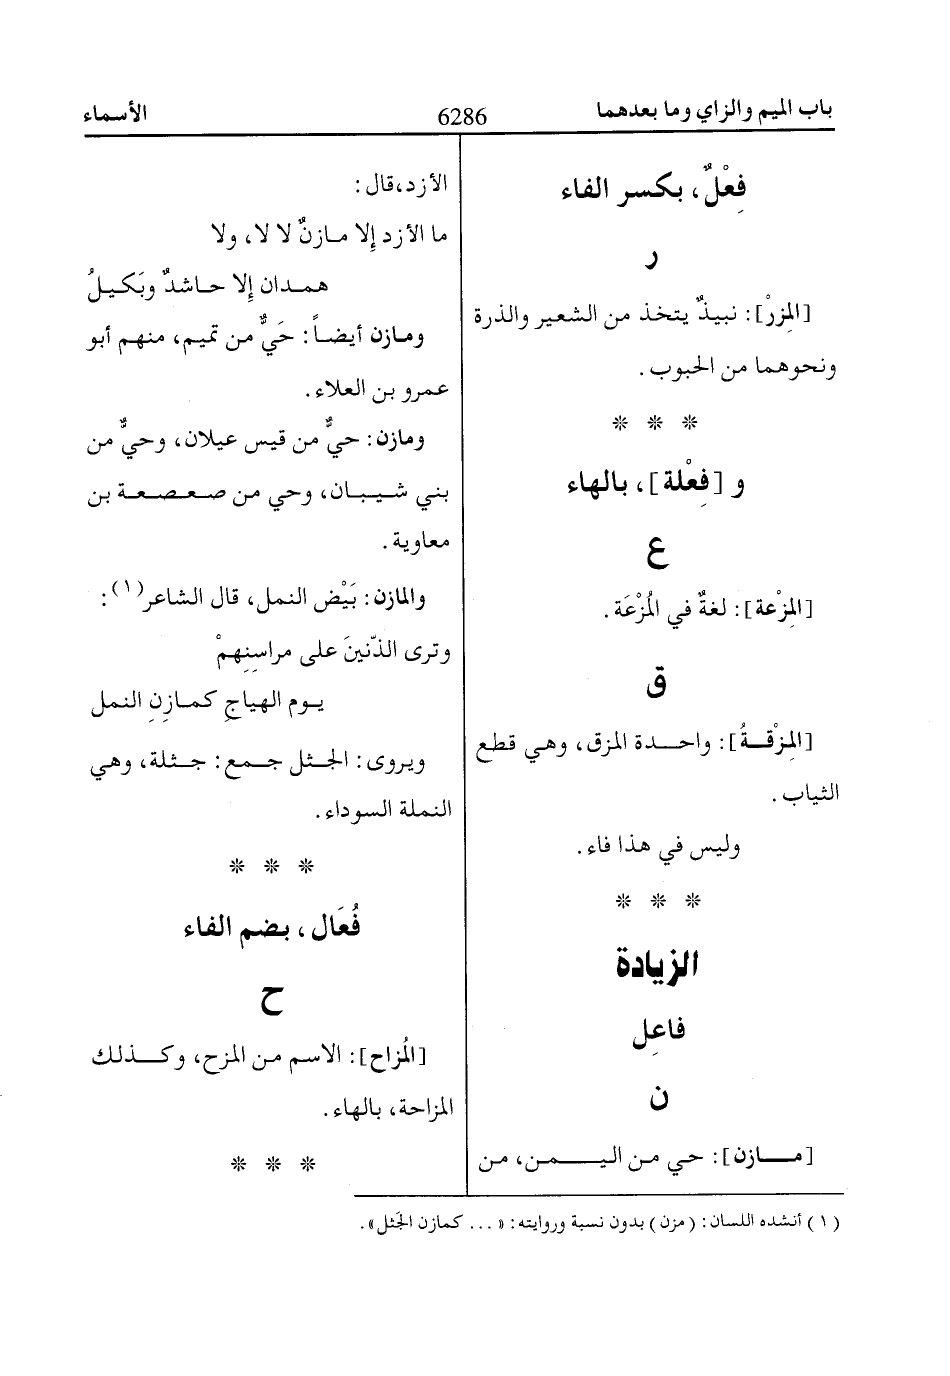 باب الميم والزاي وما بعدهما
6286
الأسماء
فِعْلٌ، بكسر الفاء
ر
[المِزرْ]: نبيذٌ يتخذ من الشعير والذرة
ونحوهما من الحبوب.
* * *
و [فِعْلة]، بالهاء
ع
[المِزْعة]: لغةٌ في المُزْعَة.
ق
[المِزْقــةُ]: واحـدة المزق، وهي قطع
الثياب.
وليس في هذا فاء.
* * *
الزيادة
فاعِل
ن
[مـــازن]: حي من اليـــمـــن، من
الأزد،قال:
ما الأزد إلا مـازنٌ لا لا، ولا
همـدان إلا حـاشدٌ وبَكـيلُ
ومـازن أيضـاً: حَيٌّ من تميم، منهم أبو
عمرو بن العلاء.
ومازن: حيٌّ من قيس عيلان، وحيٌّ من
بني شيـبـان، وحي من صـعـصـعـة بن
معاوية.
والمازن: بَيْض النمل، قال الشاعر(١):
وترى الذّنينَ على مراسِنِهمْ
يـوم الهياجِ كمـازِنِ النمل
ويروى: الجـثل جـمـع: جـثلة، وهي
النملة السوداء.
* * *
فُعَال، بضم الفاء
ح
[المُزاح]: الاسم من المزح، وكــذلك
المزاحة، بالهاء.
* * *
(١) أنشده اللسان: (مزن) بدون نسبة وروايته: «... كمازن الجَثل».